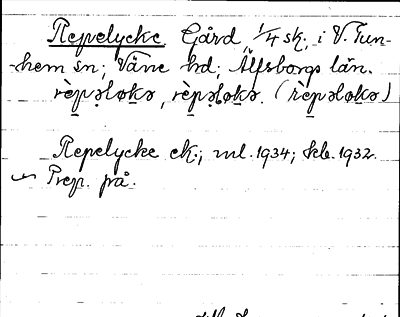 Repelycke Gård, 1/4 sk. i V. Tun-
hem sn; Väne hd; Älfsborgs län.
rèpəlokə, rèpəlokə. (rèpəlokə)
Repelycke ek.; ml. 1934; kb. 1932.
Prep. på.